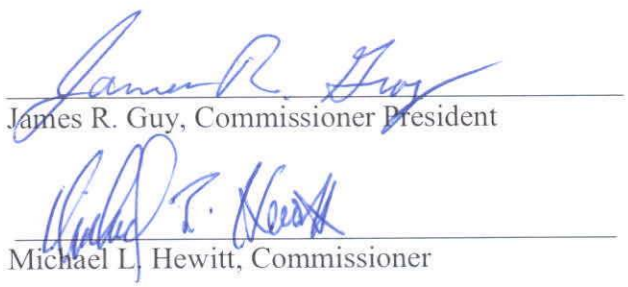 James R. Guy
James R. Guy, Commissioner President
Michael L. Hewitt
Michael L. Hewitt, Commissioner